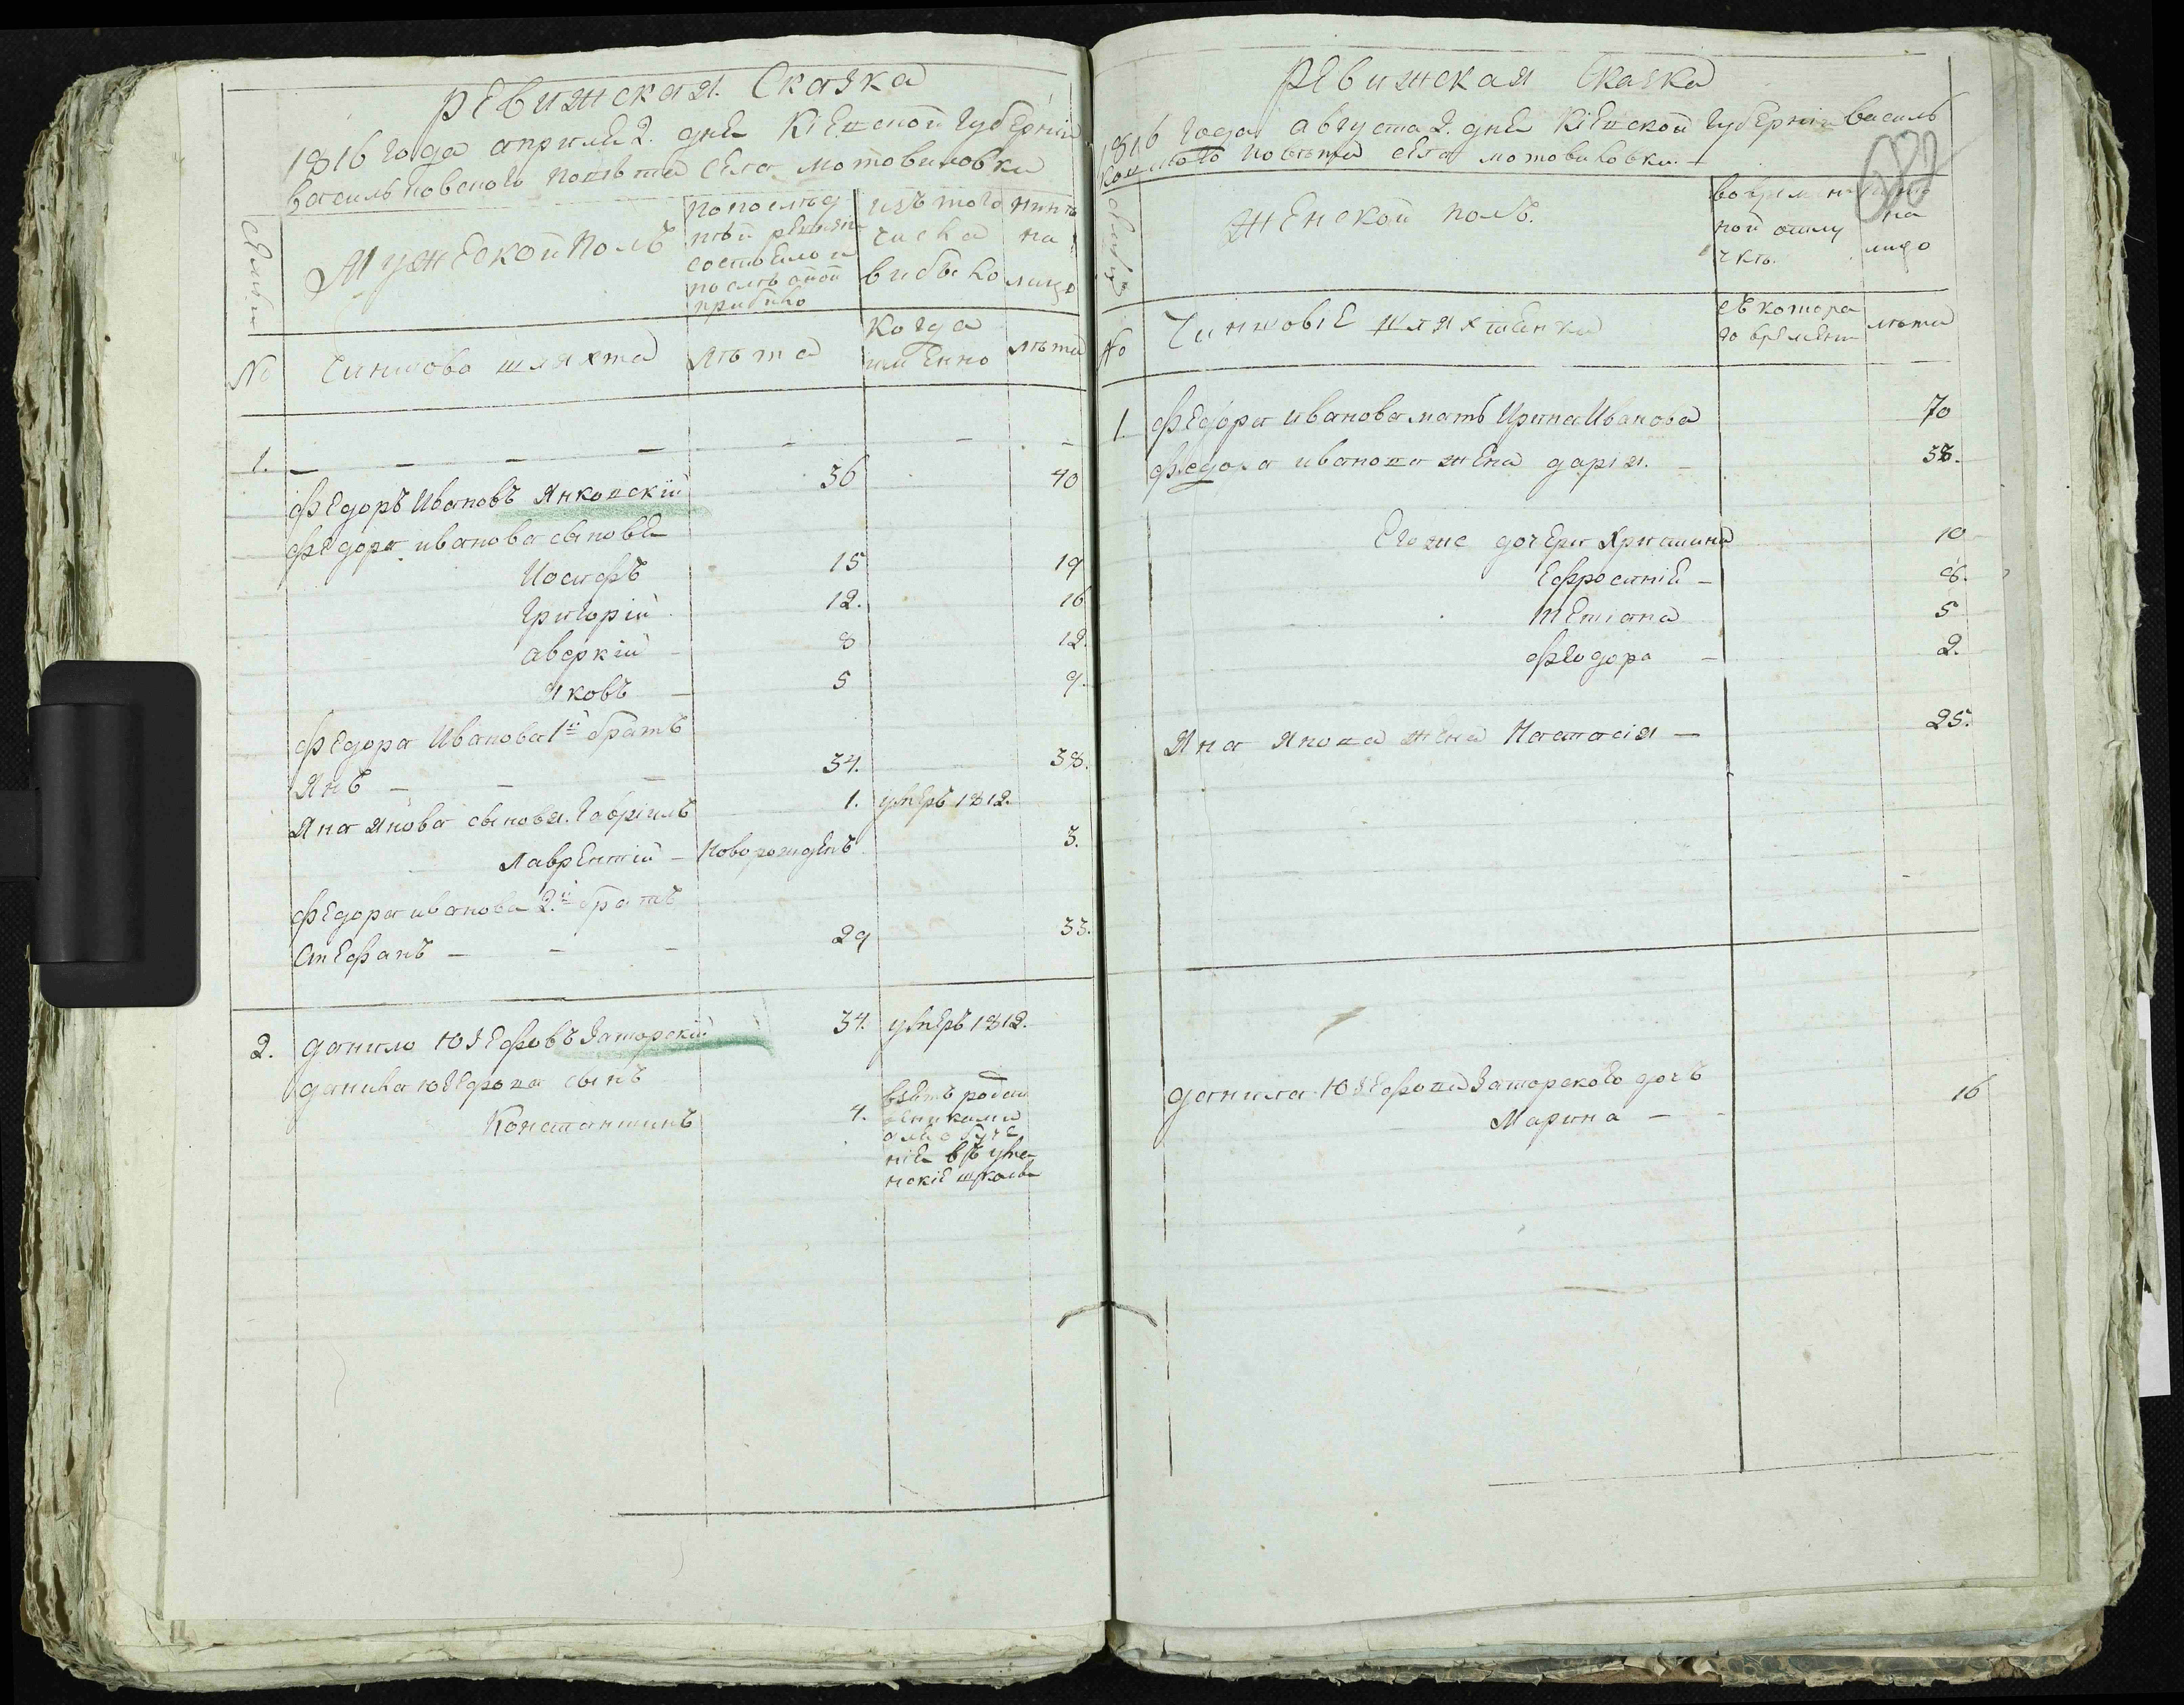 Ревижская. Сказка
1816 года априля 2. дня Кіевской губерніи
васильковского повѣта села мотовиловки
Семьи
Мужеской полъ
по послед
ней ревизіи
состояло и
после оной
прибыло
изъ того
числа
выбыло
нинѣ
на
лицо
№
Чиншова шляхта
лѣта
когда
имянно
лѣта
1.
Федоръ Ивановъ Янковскій
36
40
федора иванова сыновья
Иосифъ
15
19
Григорій
12.
16
аверкій
8
12.
яковъ
5
9.
федора Иванова 1й братъ
Янъ
34.
38.
Яна янова сыновя. Гавріилъ
1.
умеръ 1812.
Лаврентій
новорожденъ
3.
федора иванова 2.й братъ
Стефанъ
29
33.
2.
Данило Юзефовъ Заторскій
34.
умеръ 1812.
данила юзефова сынъ
Константинъ
4.
взятъ родст
венниками
ніе въ ума
нскіе школы
Ревижская Сказка
1816 года августа 2. дня Кіевской губерніи василь
ковского повѣта села мотовиловки.
Семьи
Женской полъ.
во времен
ной отлу
чкѣ.
на
лицо
№
Чиншовіе шляхтянки
съ котора
го времени
лѣта
1
федора иванова мать Ирина Иванова
70
федора иванова жена дарія.
38.
Его же дочери Христина
10
Ефросинія
8.
Тетіана
5
феодора
2.
Яна янова жена Настасія
25.
данила Юзефова Заторского дочь
Марина
16